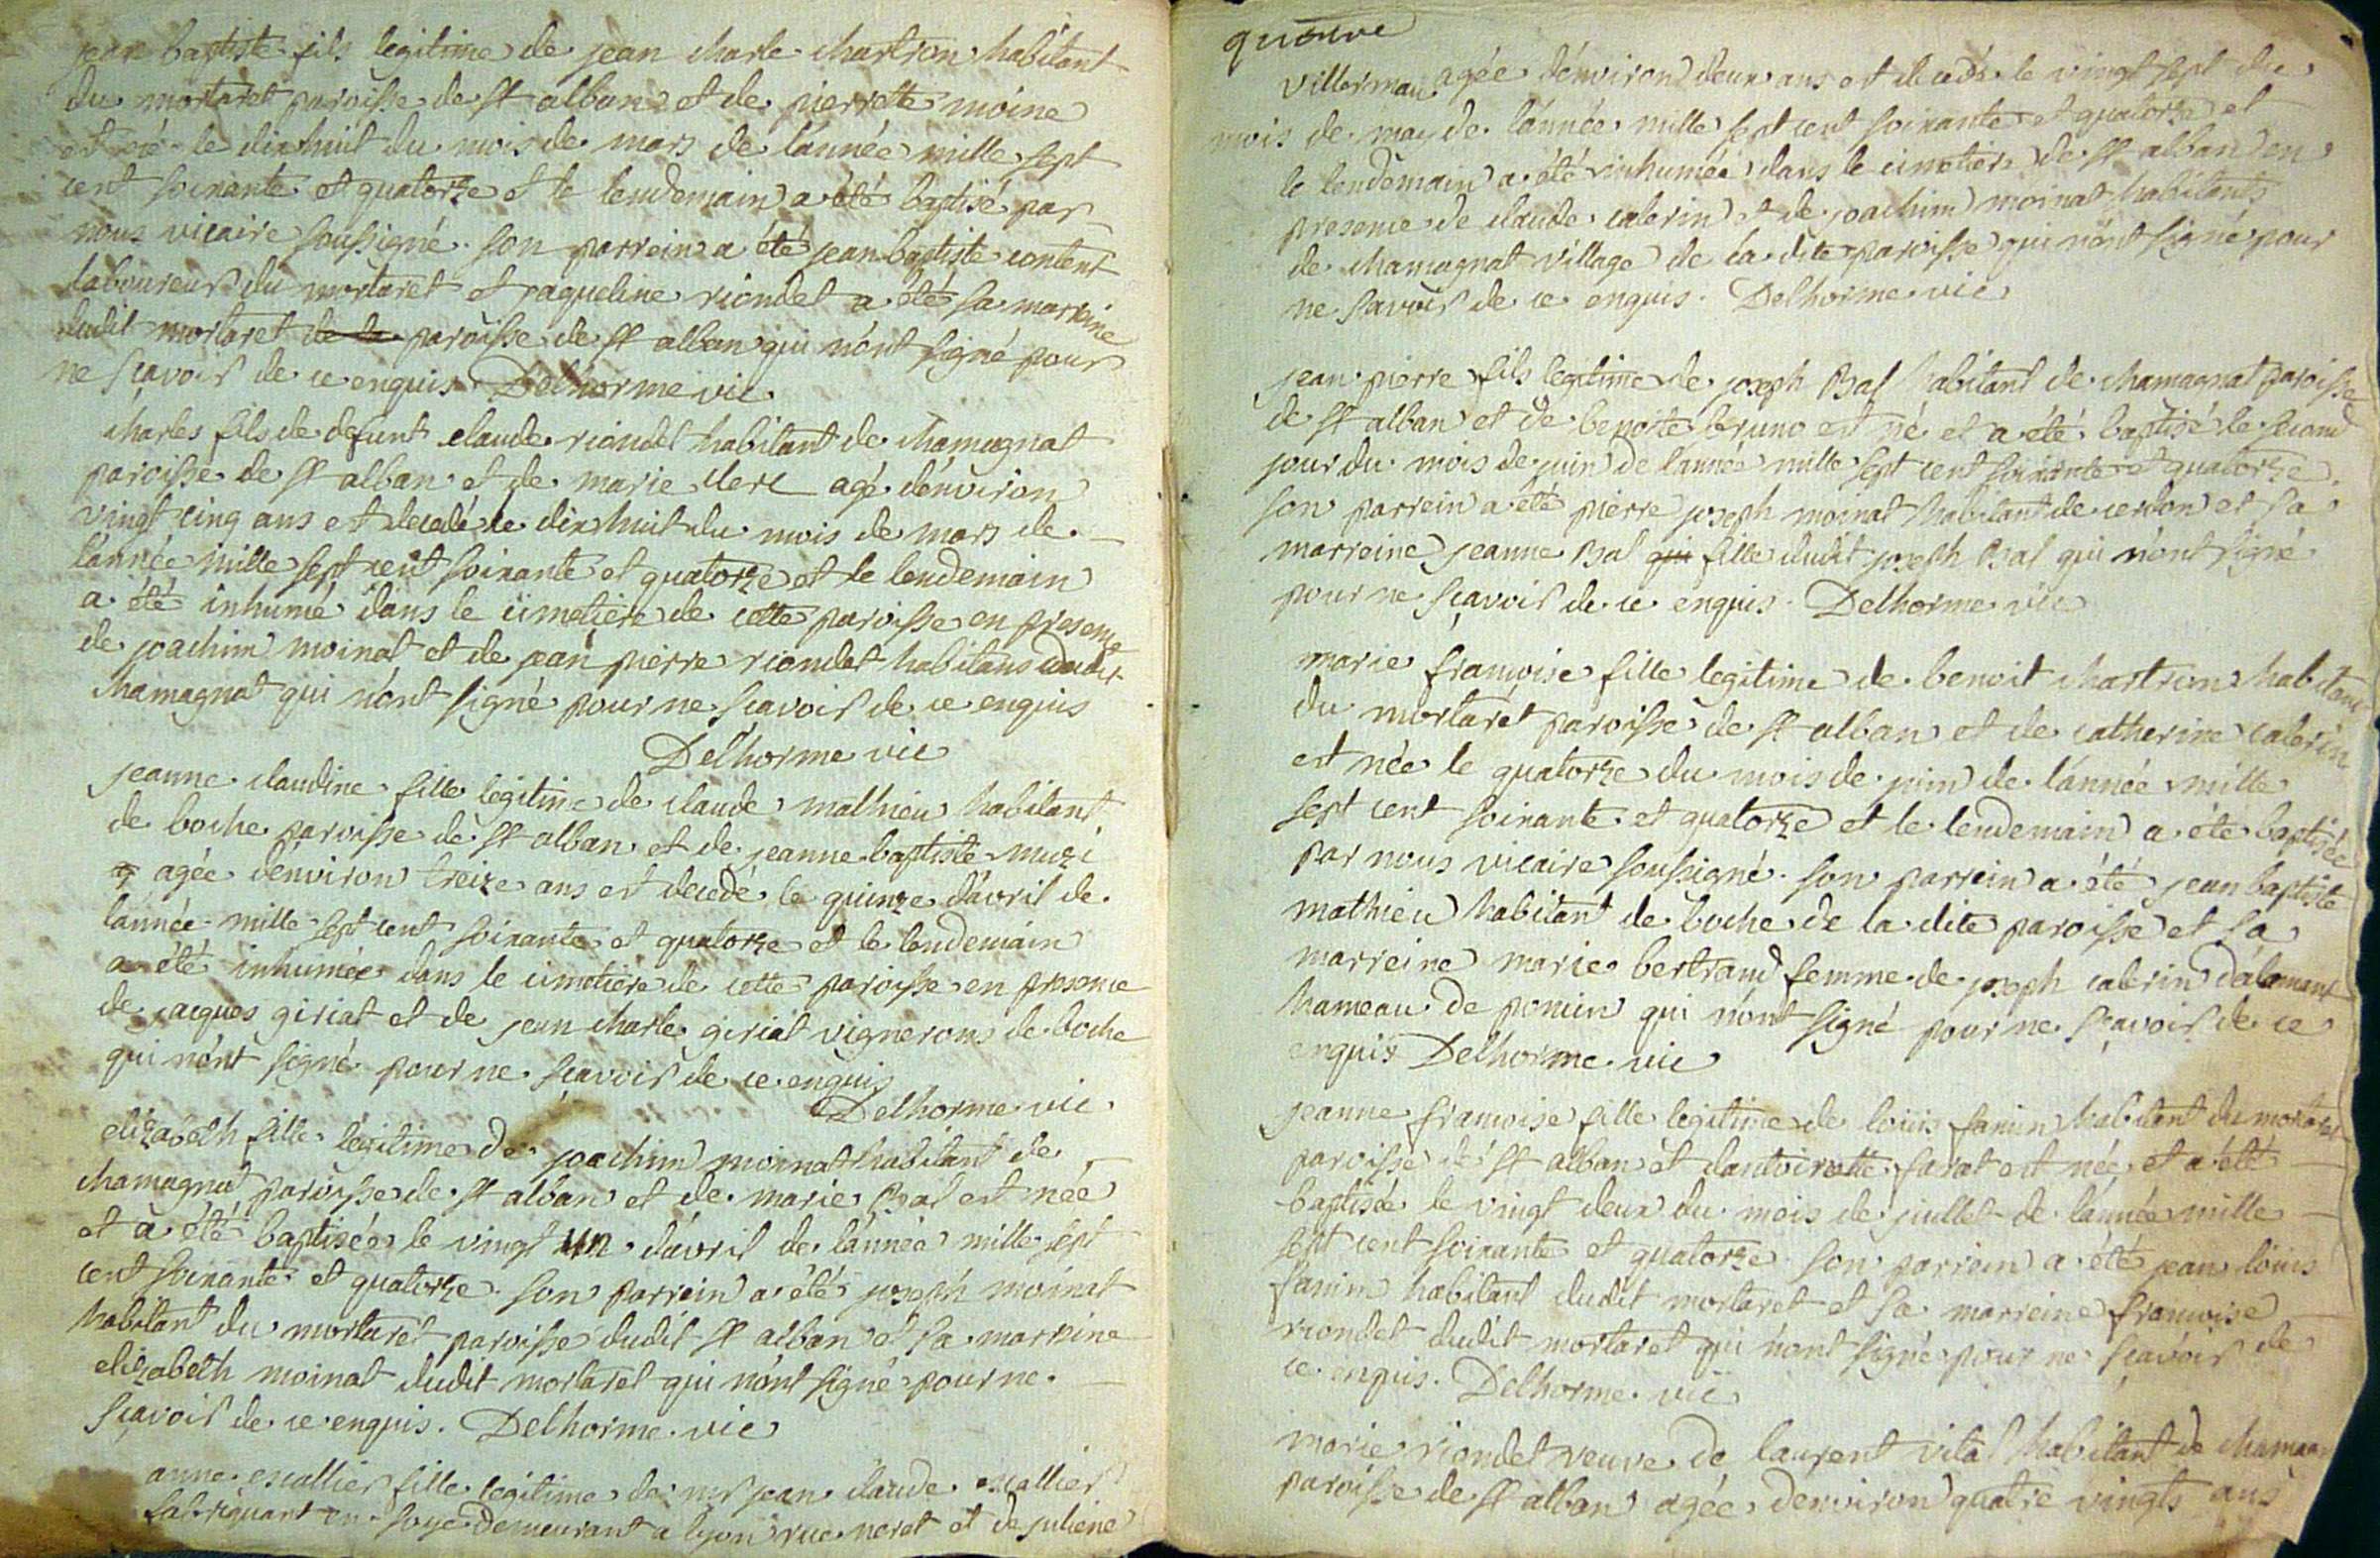 jean baptiste fils legitime de jean charle chartron habitant
du mortaret paroisse de st alban et de pierrette moine
est né le dix huit du mois de mars de l'année mille sept
cent soixante et quatorze et le lendemain a été baptisé par
nous vicaire soussigné. son parrein a été jean baptiste content
laboureur du mortaret et jaqueline riondet a été sa marreine
dudit mortaret de la paroisse de st alban qui n'ont signé pour
ne sçavoir de ce enquis Delhorme vic
charles fils de defunt claude riondet habitant de chamagnat
paroisse de st alban et de marie clerc agé d'environ
vingt cinq ans est decedé le dix huit du mois de mars de
l'année mille sept cent soixante et quatorze et le lendemain
a été inhumé dans le cimetière de cette paroisse en presence
de joachim moinat et de jean pierre riondet habitans dudit
chamagnat qui n'ont signé pour ne sçavoir de ce enquis
Delhorme vic
jeanne claudine fille legitime de claude mathieu habitant
de boche paroisse de st alban et de jeanne baptiste muzi
agée d'environ treize ans est decedé le quinze d'avril de
l'année mille sept cent soixante et quatorze et le lendemain
a été inhumée dans le cimetière de cette paroisse en presence
de jacques giriat et de jean charle giriat vignerons de boche
qui n'ont signé pour ne sçavoir de ce enquis
Delhorme vic
elizabeth fille legitime de joachim moinat habitant de
chamagnat paroisse de st alban et de marie Bal est née
et a été baptisée le vingt un d'avril de l'année mille sept
cent soixante et quatorze. son parrein a été joseph moinat
habitant du mortaret paroisse dudit st alban et sa marreine
elizabeth moinat dudit mortaret qui n'ont signé pour ne
sçavoir de ce enquis. Delhorme vic
anne escallier fille legitime de mr jean claude escallier
fabriquant en soye demeurant a lyon rue neret et de juliene
villerman agée d'environ deux ans est decedée le vingt sept du
mois de may de l'année mille sept cent soixante et quatorze et
le lendemain a été inhumée dans le cimetière de st alban en
presence de claude caterin et de joachim moinat habitants
de chamagnat village de la dite paroisse qui n'ont signé pour
ne savoir de ce enquis. Delhorme vic
jean pierre fils legitime de joseph Bal habitant de chamagnat paroisse
de st alban et de benoite bruno est né et a été baptisé le second
jour du mois de juin de l'année mille sept cent soixante et quatorze.
son parrein a été pierre joseph moinat habitant de cerdon et sa
marreine jeanne Bal qui fille dudit joseph Bal qui n'ont signé
pour ne sçavoir de ce enquis. Delhorme vic
marie françoise fille legitime de benoit chartron habitant
du mortaret paroisse de st alban et de catherine caterin
est née le quatorze du mois de juin de l'année mille
sept cent soixante et quatorze et le lendemain a été baptisée
par nous vicaire soussigné. son parrein a été jean baptiste
mathieu habitant de boche de la dite paroisse et sa
marreine marie bertrand femme de joseph caterin d'alamant
hameau de poncin qui n'ont signé pour ne sçavoir de ce
enquis Delhorme vic
jeanne françoise fille legitime de louis fanin habitant du mortaret
paroisse de st alban et d'antoinette savat est née et a été
baptisée le vingt deux du mois de juillet de l'année mille
sept cent soixante et quatorze. son parrein a été jean louis
fanin habitant dudit mortaret et sa marreine françoise
riondet dudit mortaret qui n'ont signé pour ne sçavoir de
ce enquis. Delhorme vic
marie riondet veuve de laurent vital habitant de chamag
paroisse de st alban agée d'environ quatre vingts ans